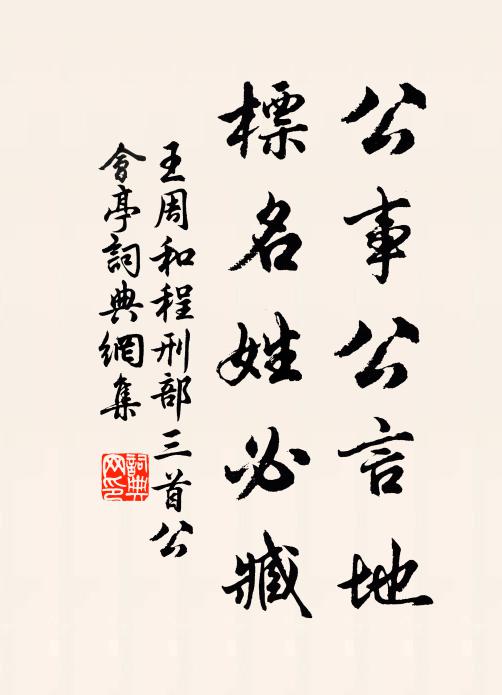 公事公言地
標名姓必臧
王周和程刑部三首公
會亭詞典網集
詞典
网印